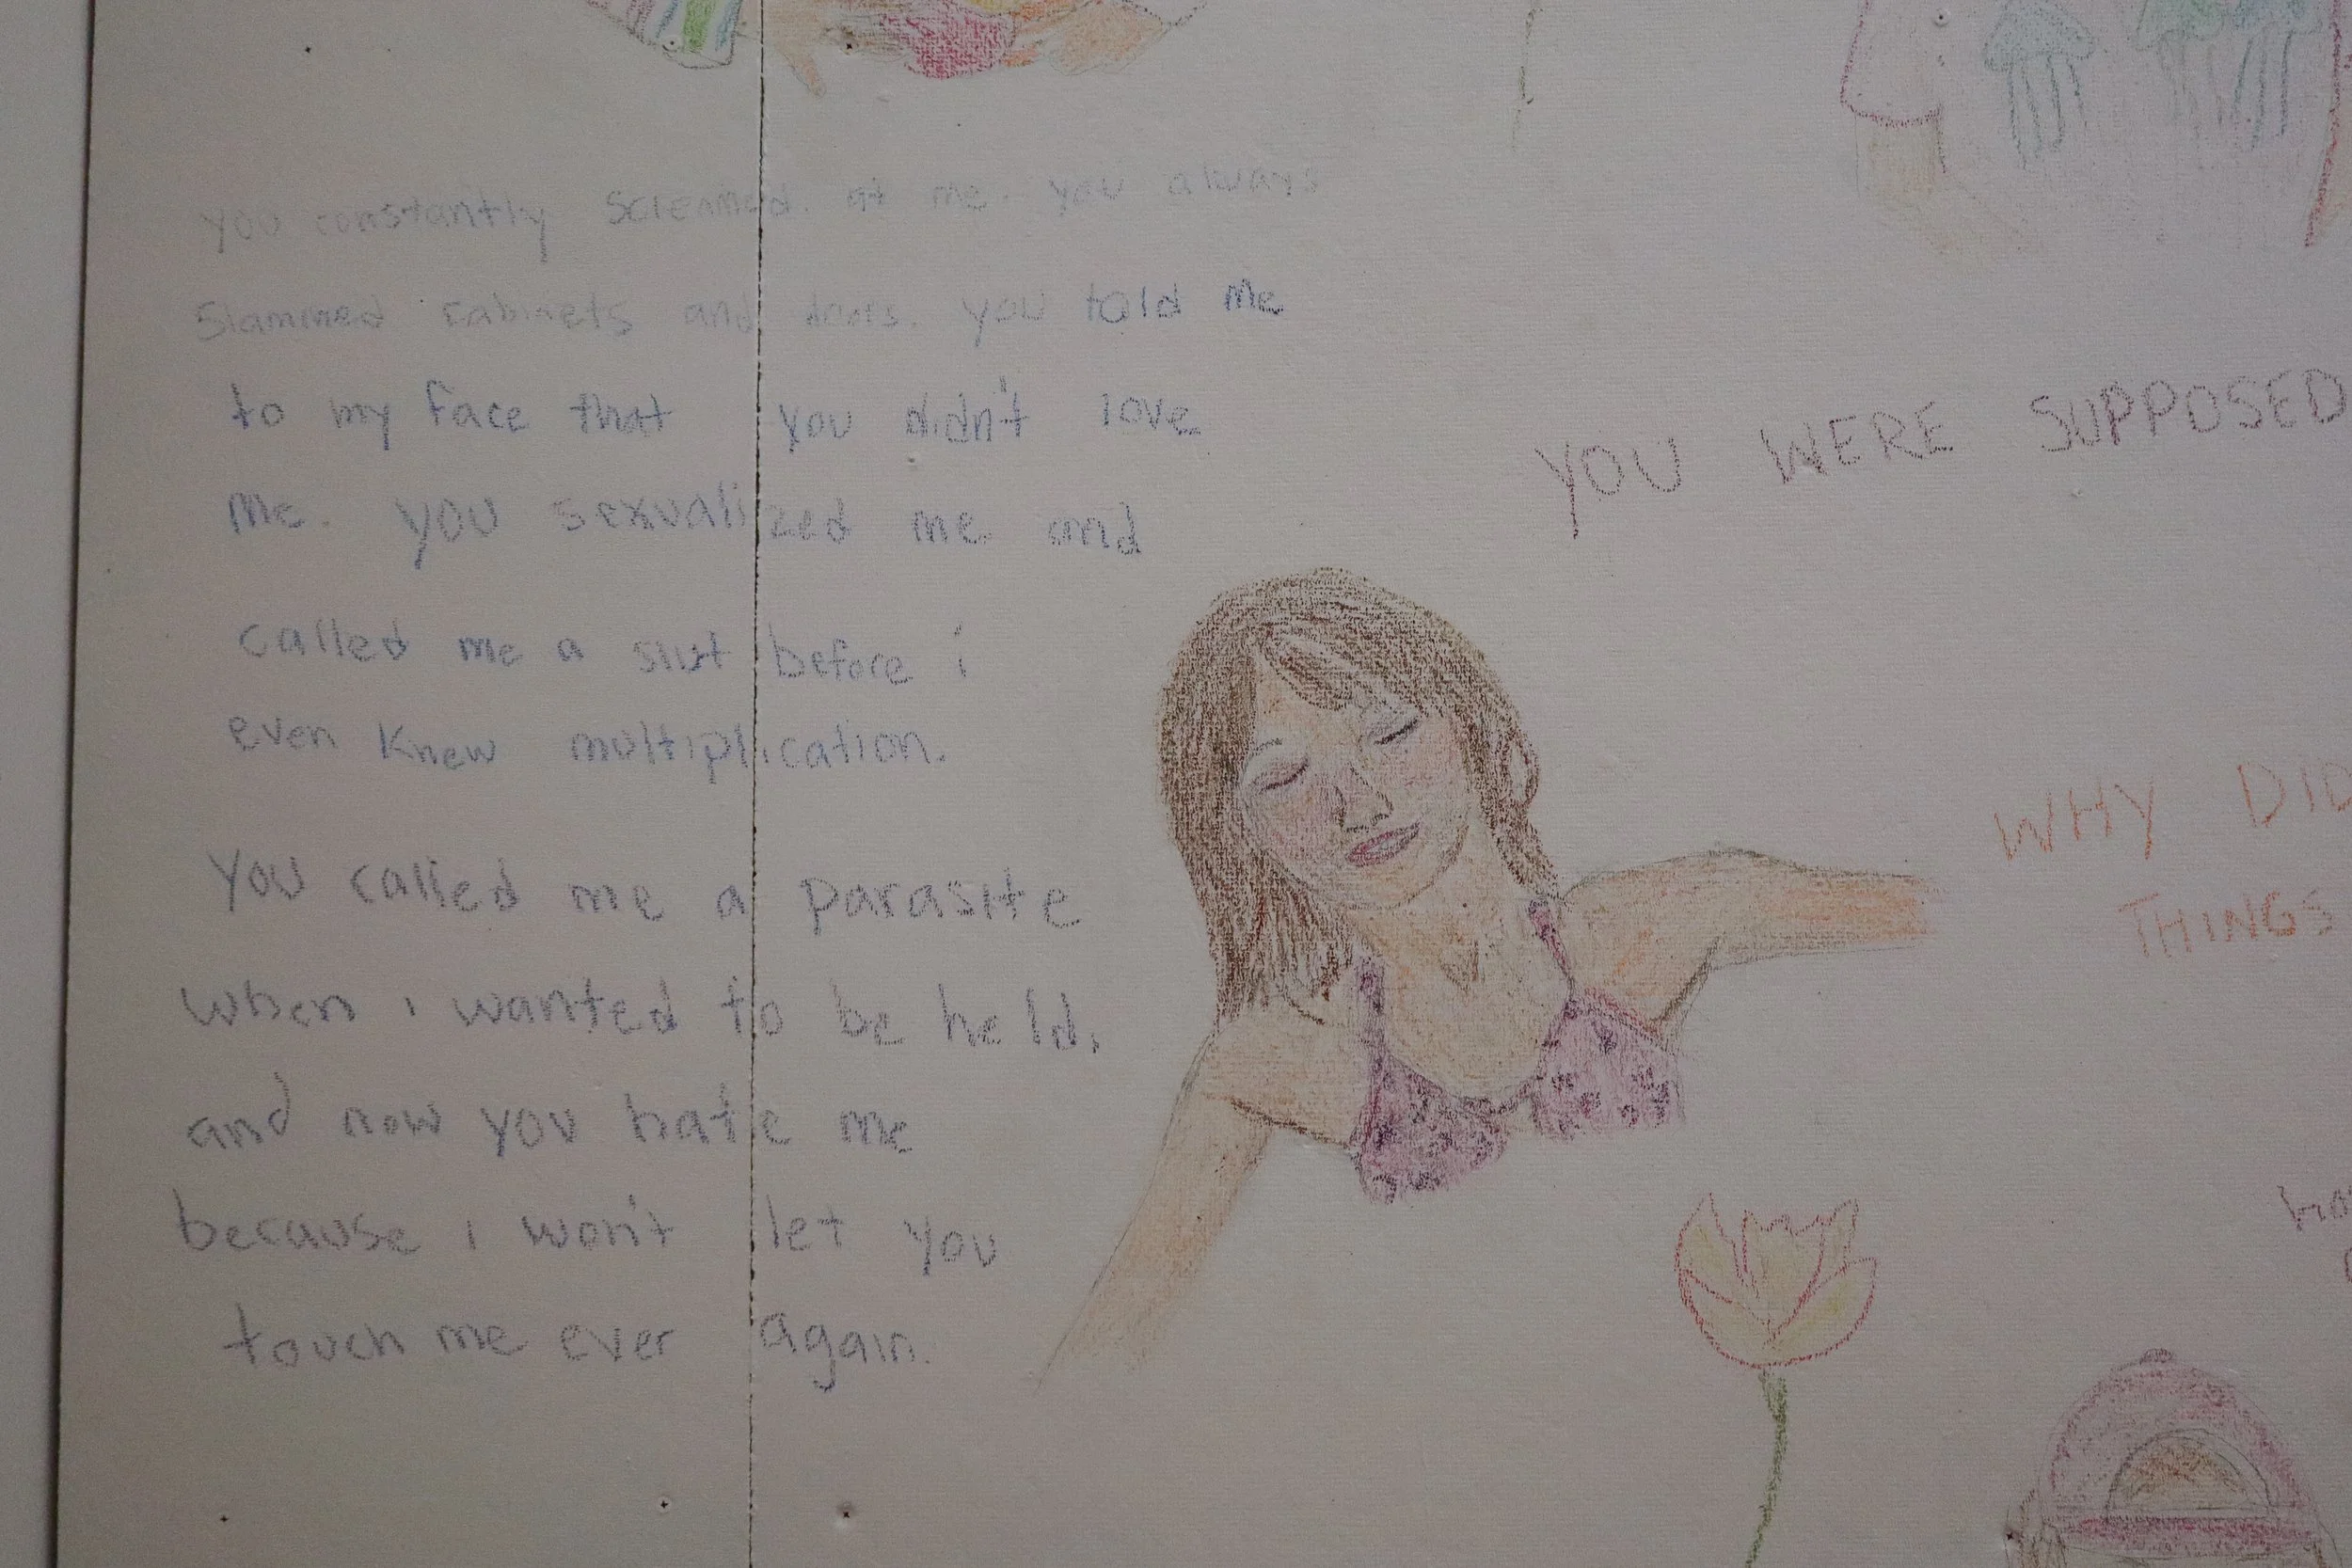 you constantly screamed. at me. you always
slammed cabinets and doors. you told me
to my face that you didn't love
me. you sexualized me and
called me a slut before i
even knew multiplication.
You called me a parasite
when i wanted to be held.
and now you hate me
because i won't let you
touch me ever again.
YOU WERE SUPPOSED
WHY DID
THINGS